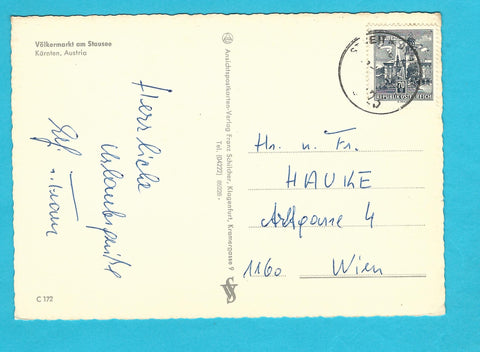 Völkermarkt am Stausee
Kärnten, Austria
Herrliche
Urlaubsgrüße
C 172
Ansichtskarten-Verlag Franz Schilcher, Klagenfurt, Kramergasse 9
70
REPUBLIK ÖSTERREICH
Hr. u. Fr.
HAUKE
Arltgasse 4
1160 Wien